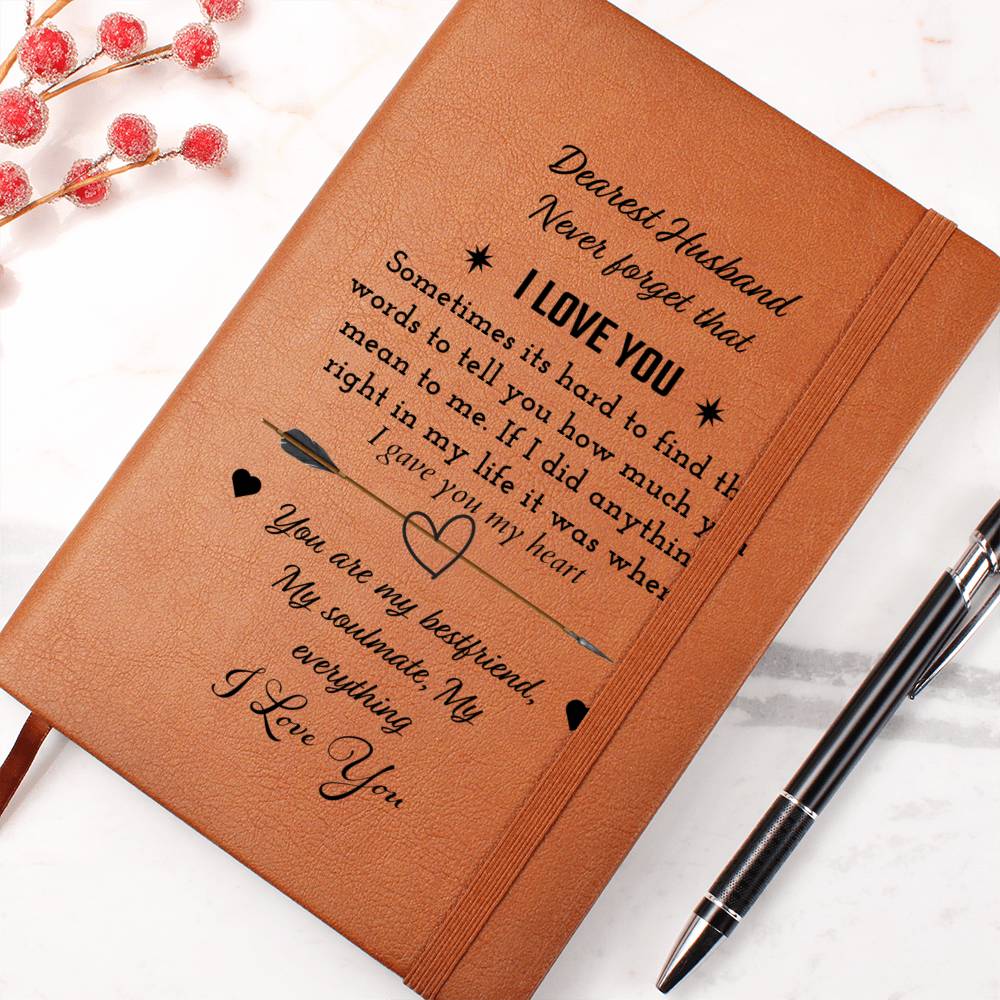 Dearest Husband
Never forget that
I LOVE YOU
Sometimes its hard to find
words to tell you how much
mean to me. If I did
right in my life it was
I gave you my heart
You are my bestfriend,
My soulmate, My
everything
I Love You